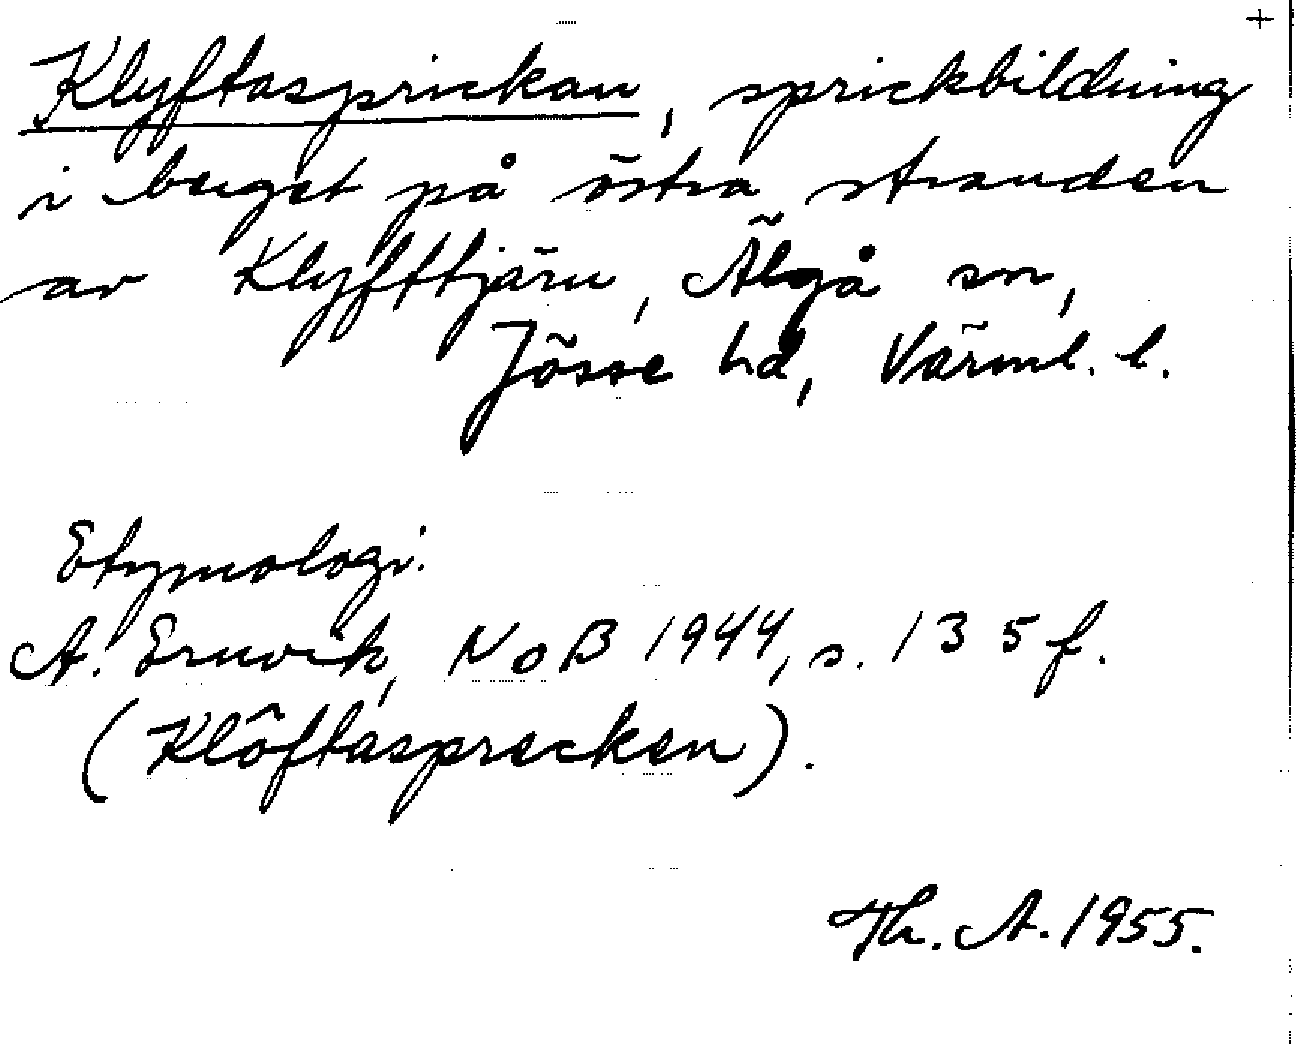 +
Klyftasprickan, sprickbildning
i berget på östra stranden
av Klyfttjärn, Älgå sn,
Jösse hd, Värml. l.
Etymologi:
A. Ernvik, NoB 1944, s. 135 f.
(Klôftasprecken).
Th. A. 1955.